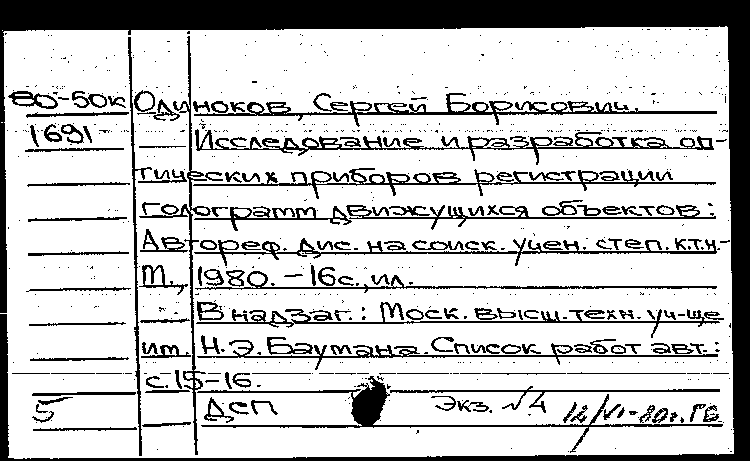 80-50к Одиноков, Сергей Борисович.
1691 Исследование и разработка оп-
тических приборов регистрации
голограмм движущихся объектов:
Автореф. дис. на соиск. учен. степ. к.т.н-
М., 1980. - 16 с., ил.
В надзаг.: Моск. высш. техн. уч-ще
им. Н.Э. Баумана. Список работ авт.:
с. 15-16.
5 ДСП Экз. №4 12/VI-80г. ГБ